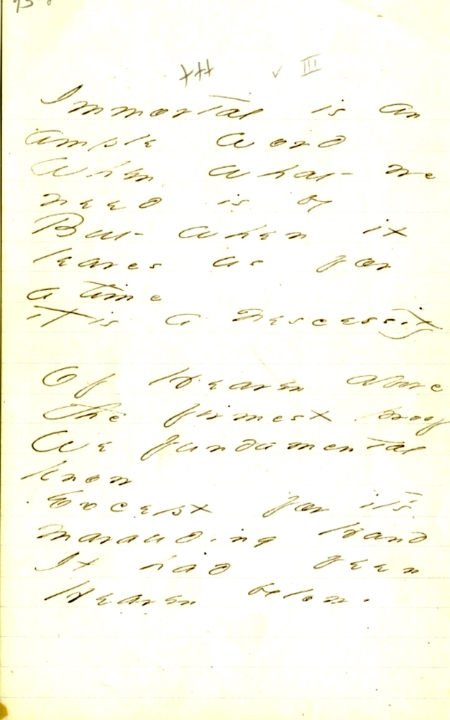 75
III
Immortal is an
ample word
When what we
need is by
But when it
leaves us for
a time
'tis a nescessity
Of Heaven above
the firmest proof
We fundamental
know
Except for it's
marauding Hand
It had been
Heaven below.